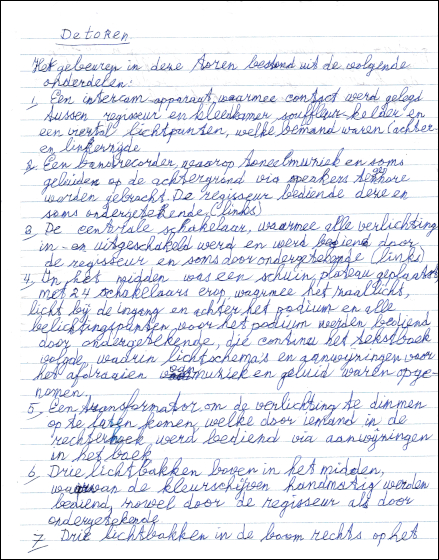 De toren
Het gebeuren in deze toren bestond uit de volgende
onderdelen:
1. Een intercom-apparaat, waarmee contact werd gelegd
tussen regisseur en kleedkamer, souffleur-kelder en
een viertal lichtpunten, welke bemand waren (achter
en linkerzijde
2. Een bandrecorder, waarop toneelmuziek en soms
geluiden op de achtergrond via speakers ten gehore
worden gebracht. De regisseur bediende deze en
soms ondergetekende (links)
3. De centrale schakelaar, waarmee alle verlichting
in- en uitgeschakeld werd en werd bediend door
de regisseur en soms door ondergetekende (links)
4. In het midden was een schuin plateau geplaatst,
met 24 schakelaars erop, waarmee het zaallicht,
licht bij de ingang en achter het podium en alle
belichtingspunten voor het podium werden bediend
door ondergetekende, die continu het tekstboek
volgde, waarin lichtschema's en aanwijzingen voor
het afdraaien van muziek en geluid waren opge-
nomen.
5. Een transformator, om de verlichting te dimmen
op te laten komen, welke door iemand in de
rechterhoek, werd bediend via aanwijzingen
in het boek
6. Drie lichtbakken boven in het midden,
waarvan de kleurschijven handmatig werden
bediend, zowel door de regisseur als door
ondergetekende
7. Drie lichtbakken in de boom rechts op het